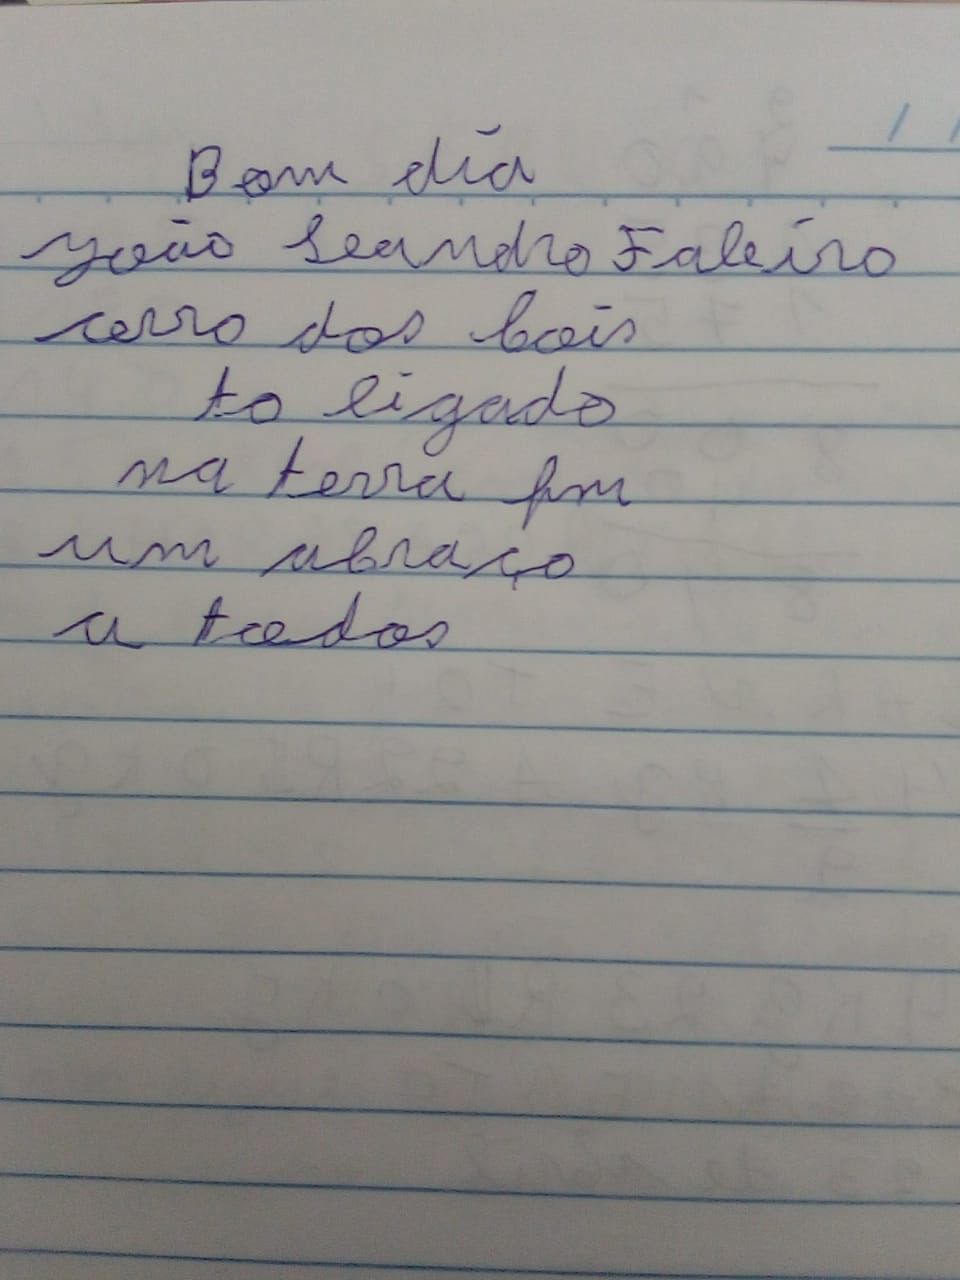 Bom día
João Leandro Faleiro
cerro dos bois
to ligado
na terra fm
um abraço
a todos